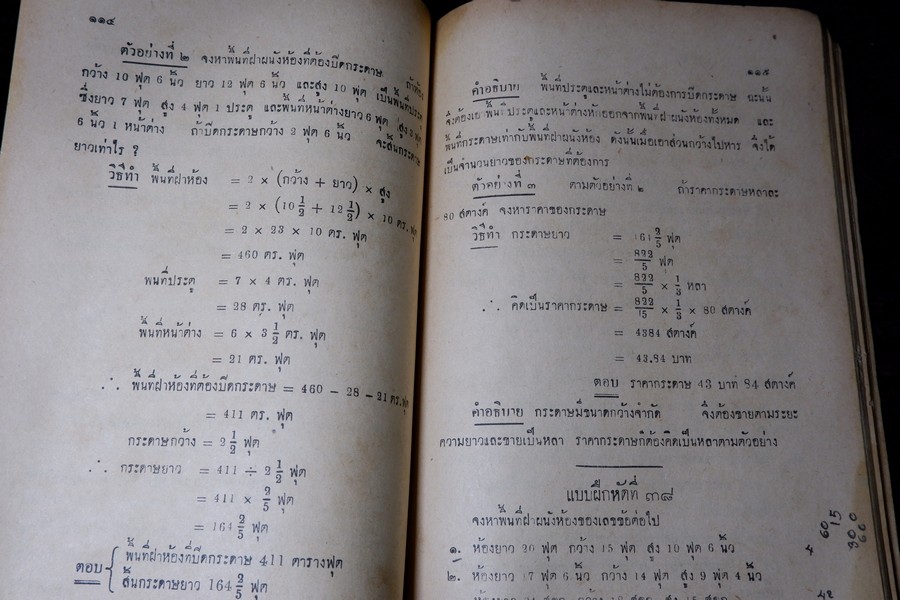 ๑๑๔
ตัวอย่างที่ ๒ จงหาพื้นที่ฝาผนังห้องที่ต้องปิดกระดาษ ถ้าห้อง
กว้าง 10 ฟุต 6 นิ้ว ยาว 12 ฟุต 6 นิ้ว และสูง 10 ฟุต เป็นพื้นที่ประตู
ซึ่งยาว 7 ฟุต สูง 4 ฟุต 1 ประตู และพื้นที่หน้าต่างยาว 6 ฟุต สูง 3 ฟุต
6 นิ้ว 1 หน้าต่าง ถ้าปิดกระดาษกว้าง 2 ฟุต 6 นิ้ว จะสิ้นกระดาษ
ยาวเท่าไร ?
วิธีทำ พื้นที่ฝาห้อง = 2 × (กว้าง + ยาว) × สูง
= 2 × (10 1/2 + 12 1/2) × 10 ตร. ฟุต
= 2 × 23 × 10 ตร. ฟุต
= 460 ตร. ฟุต
พื้นที่ประตู = 7 × 4 ตร. ฟุต
= 28 ตร. ฟุต
พื้นที่หน้าต่าง = 6 × 3 1/2 ตร. ฟุต
= 21 ตร. ฟุต
∴ พื้นที่ฝาห้องที่ต้องปิดกระดาษ = 460 − 28 − 21 ตร.ฟุต
= 411 ตร. ฟุต
กระดาษกว้าง = 2 1/2 ฟุต
∴ กระดาษยาว = 411 ÷ 2 1/2 ฟุต
= 411 × 2/5 ฟุต
= 164 2/5 ฟุต
ตอบ { พื้นที่ฝาห้องที่ปิดกระดาษ 411 ตารางฟุต
สิ้นกระดาษยาว 164 2/5 ฟุต
๑๑๕
คำอธิบาย พื้นที่ประตูและหน้าต่างไม่ต้องการปิดกระดาษ ฉะนั้น
จึงต้องเอาพื้นที่ประตูและหน้าต่างหักออกจากพื้นที่ฝาผนังห้องทั้งหมด และ
พื้นที่กระดาษเท่ากับพื้นที่ฝาผนังห้อง ดังนั้นเมื่อเอาส่วนกว้างไปหาร จึงได้
เป็นจำนวนยาวของกระดาษที่ต้องการ
ตัวอย่างที่ ๓ ตามตัวอย่างที่ ๒ ถ้าราคากระดาษหลาละ
80 สตางค์ จงหาราคาของกระดาษ
วิธีทำ กระดาษยาว = 164 2/5 ฟุต
= 822/5 ฟุต
= 822/5 × 1/3 หลา
∴ คิดเป็นราคากระดาษ = 822/5 × 1/3 × 80 สตางค์
= 4384 สตางค์
= 43.84 บาท
ตอบ ราคากระดาษ 43 บาท 84 สตางค์
คำอธิบาย กระดาษมีขนาดกว้างจำกัด จึงต้องขายตามระยะ
ความยาวและขายเป็นหลา ราคากระดาษก็ต้องคิดเป็นหลาตามตัวอย่าง
แบบฝึกหัดที่ ๓๘
จงหาพื้นที่ฝาผนังห้องของเลขข้อต่อไป
๑. ห้องยาว 20 ฟุต กว้าง 15 ฟุต สูง 10 ฟุต 6 นิ้ว
๒. ห้องยาว 17 ฟุต 6 นิ้ว กว้าง 14 ฟุต สูง 9 ฟุต 4 นิ้ว
60
15
300
60